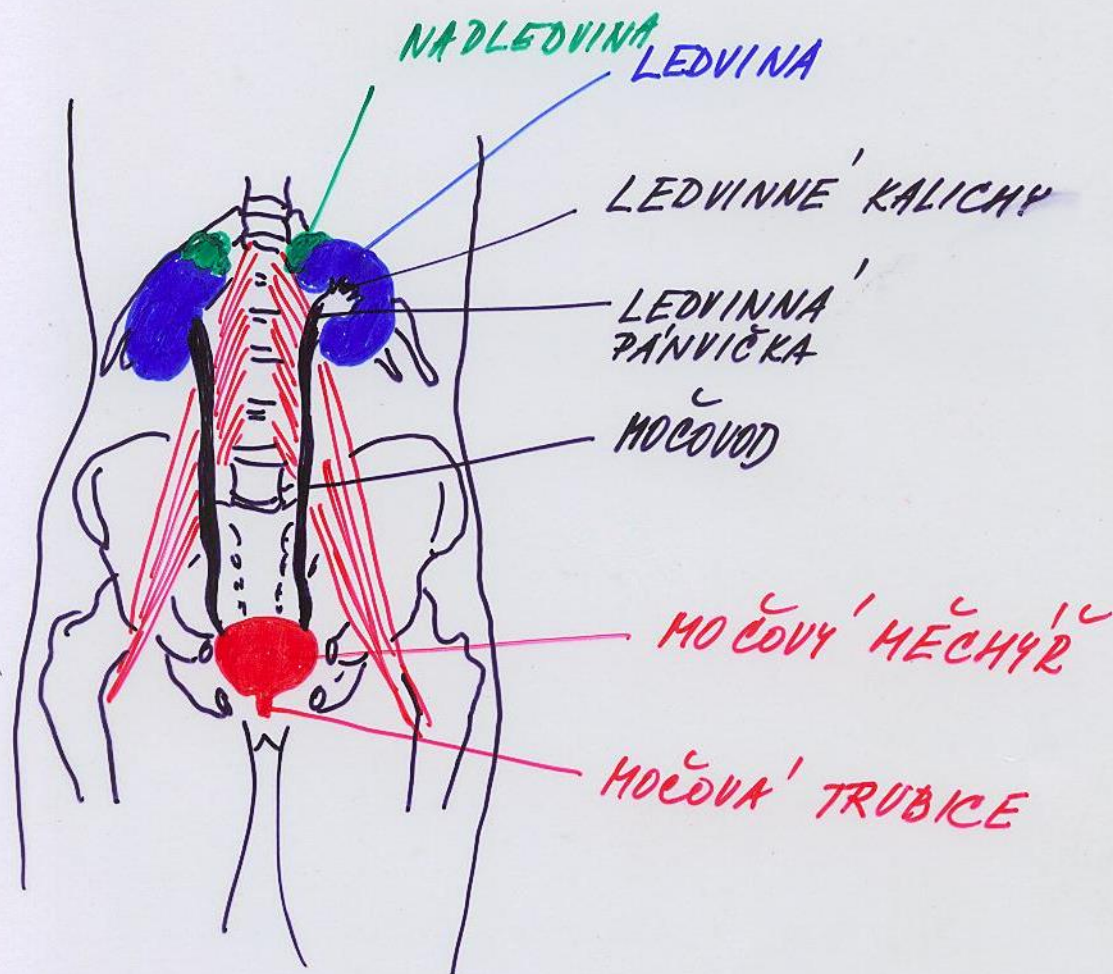 NADLEDVINA
LEDVINA
LEDVINNÉ KALICHY
LEDVINNÁ
PÁNVIČKA
MOČOVOD
MOČOVÝ MĚCHÝŘ
MOČOVÁ TRUBICE